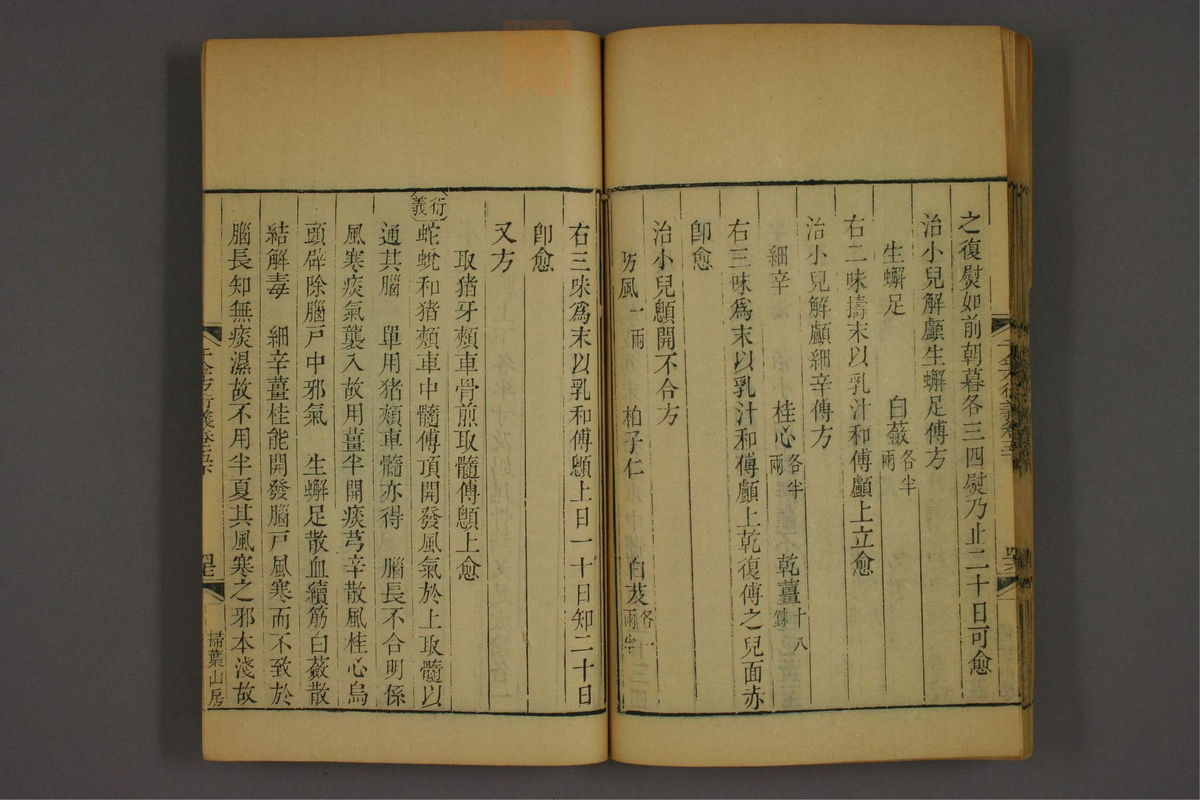 之復熨如前朝暮各三四熨乃止二十日可愈
治小兒解顱生蠏足傅方
生蠏足 白蘞各半兩
右二味擣末以乳汁和傅顱上立愈
治小兒解顱細辛傅方
細辛 桂心各半兩 乾薑十八銖
右三味爲末以乳汁和傅顱上乾復傅之兒面赤
卽愈
治小兒顖開不合方
防風一兩 柏子仁 白芨各一兩
右三味爲末以乳和傅顖上日一十日知二十日
卽愈
又方
取猪牙頰車骨煎取髓傅顖上愈
衍義
蛇蛻和猪頰車中髓傅頂開發風氣於上取髓以
通其腦 單用猪頰車髓亦得 腦長不合明係
風寒痰氣襲入故用薑半開痰芎辛散風桂心烏
頭辟除腦戸中邪氣 生蠏足散血續筋白蘞散
結解毒 細辛薑桂能開發腦戸風寒而不致於
腦長知無痰濕故不用半夏其風寒之邪本淺故
千金方衍義卷五下
掃葉山房